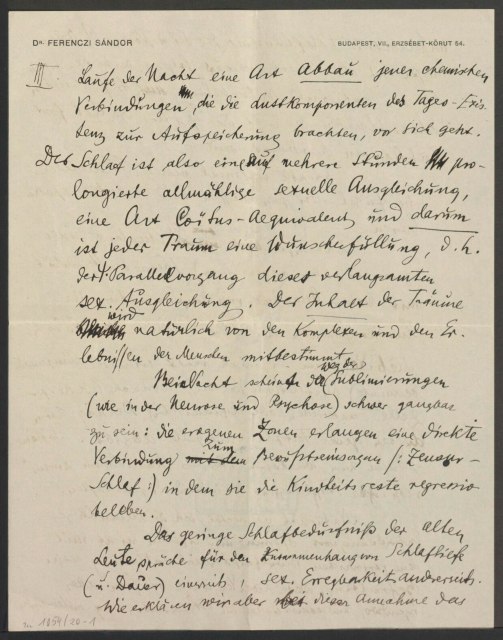 Dr. FERENCZI SÁNDOR
BUDAPEST, VII., ERZSÉBET-KÖRUT 54.
III
Laufe der Nacht eine Art Abbau jener chemischen
Verbindungen, die die Lustkomponenten des Tages-Exis-
tenz zur Aufspeicherung brachten, vor sich geht.
Der Schlaf ist also eine auf mehrere Stunden pro-
longierte allmählige sexuelle Ausgleichung,
eine Art Coïtus-Aequivalent, und darum
ist jeder Traum eine Wunscherfüllung, d. h.
der Parallelvorgang dieses verlangsamten
sex. Ausgleichung. Der Inhalt der Träume
wird natürlich von den Komplexen und den Er-
lebnissen der Menschen mitbestimmt.
Bei Nacht scheint der Weg der Sublimierungen
(wie in der Neurose und Psychose) schwer gangbar
zu sein: die erogenen Zonen erlangen eine direkte
Verbindung zum Bewußtseinsorgan /: Zensur-
Schlaf :/ in dem sie die Kindheitsreste regressiv
beleben.
Das geringe Schlafbedürfniß der alten
Leute spräche für den Zusammenhang von Schlaftiefe
(u. Dauer) einerseits, sex. Erregbarkeit anderseits.
Wie erklären wir aber bei dieser Annahme das
1054/20-1